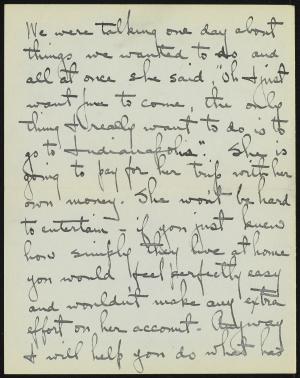 We were talking one day about
things we wanted to do and
all at once she said, "Oh I just
want June to come, the only
thing I really want to do is to
go to Indianapolis." She is
going to pay for her trip with her
own money. She won't be hard
to entertain - if you just knew
how simply they live at home
you would feel perfectly easy
and wouldn't make any extra
effort on her account. Anyway
I will help you do what has